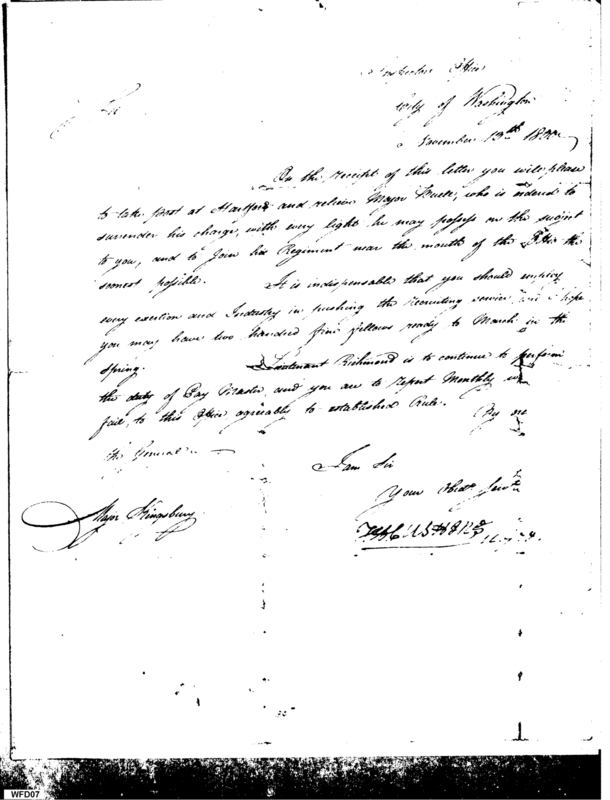 Inspectors Office
City of Washington
November 13th 1800
Sir
On the receipt of this letter you will please
to take post at Hartford and relieve Major Buell, who is ordered to
surrender his charge, with every light he may possess on the subject
to you, and to Join his Regiment near the mouth of the Ohio the
soonest possible. It is indispensable that you should employ
every exertion and Industry in pushing the recruiting service, and I hope
you may have two hundred fine fellows ready to March in the
Spring. Lieutenant Richmond is to continue to perform
the duty of Pay Master, and you are to report Monthly
fail, to this Office agreeably to established Rule. By
the General
I am Sir
Your Obedt Servt
Major Kingsbury
WFD07